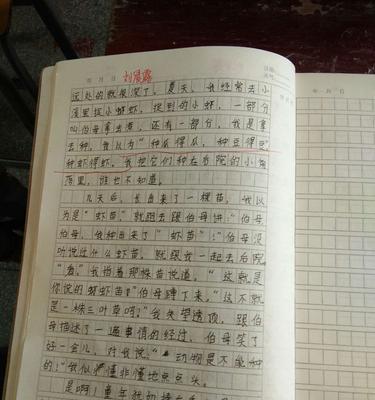 年 月 日 刘晨露
远处的就很深了。夏天，我经常去小
溪里捉小螃虾，捉到的小虾，一部分
叫伯母拿去煮，还有一部分，我是拿
去种。我以为“种瓜得瓜，种豆得豆，
种虾得虾。我把它们种在后院的小
落里，谁也不知道。
几天后，长出来了一棵苗，我以
为是“虾苗”就跑去跟伯母讲“伯母，
伯母，我种出来了“虾苗”！”伯母没
听说过什么虾苗，就跟我一起去后院
“看”我指着那株苗说道，“这就是
你说的虾苗”伯母蹲了下来，“这不就
是一株三叶草吗？”我失望透顶，跟伯
母描述了一遍事情的经过，伯母笑了
好一会儿，对我说：“动物是不能种
的！”我似懂非懂地点点头。
是啊！童年就
年 月 日